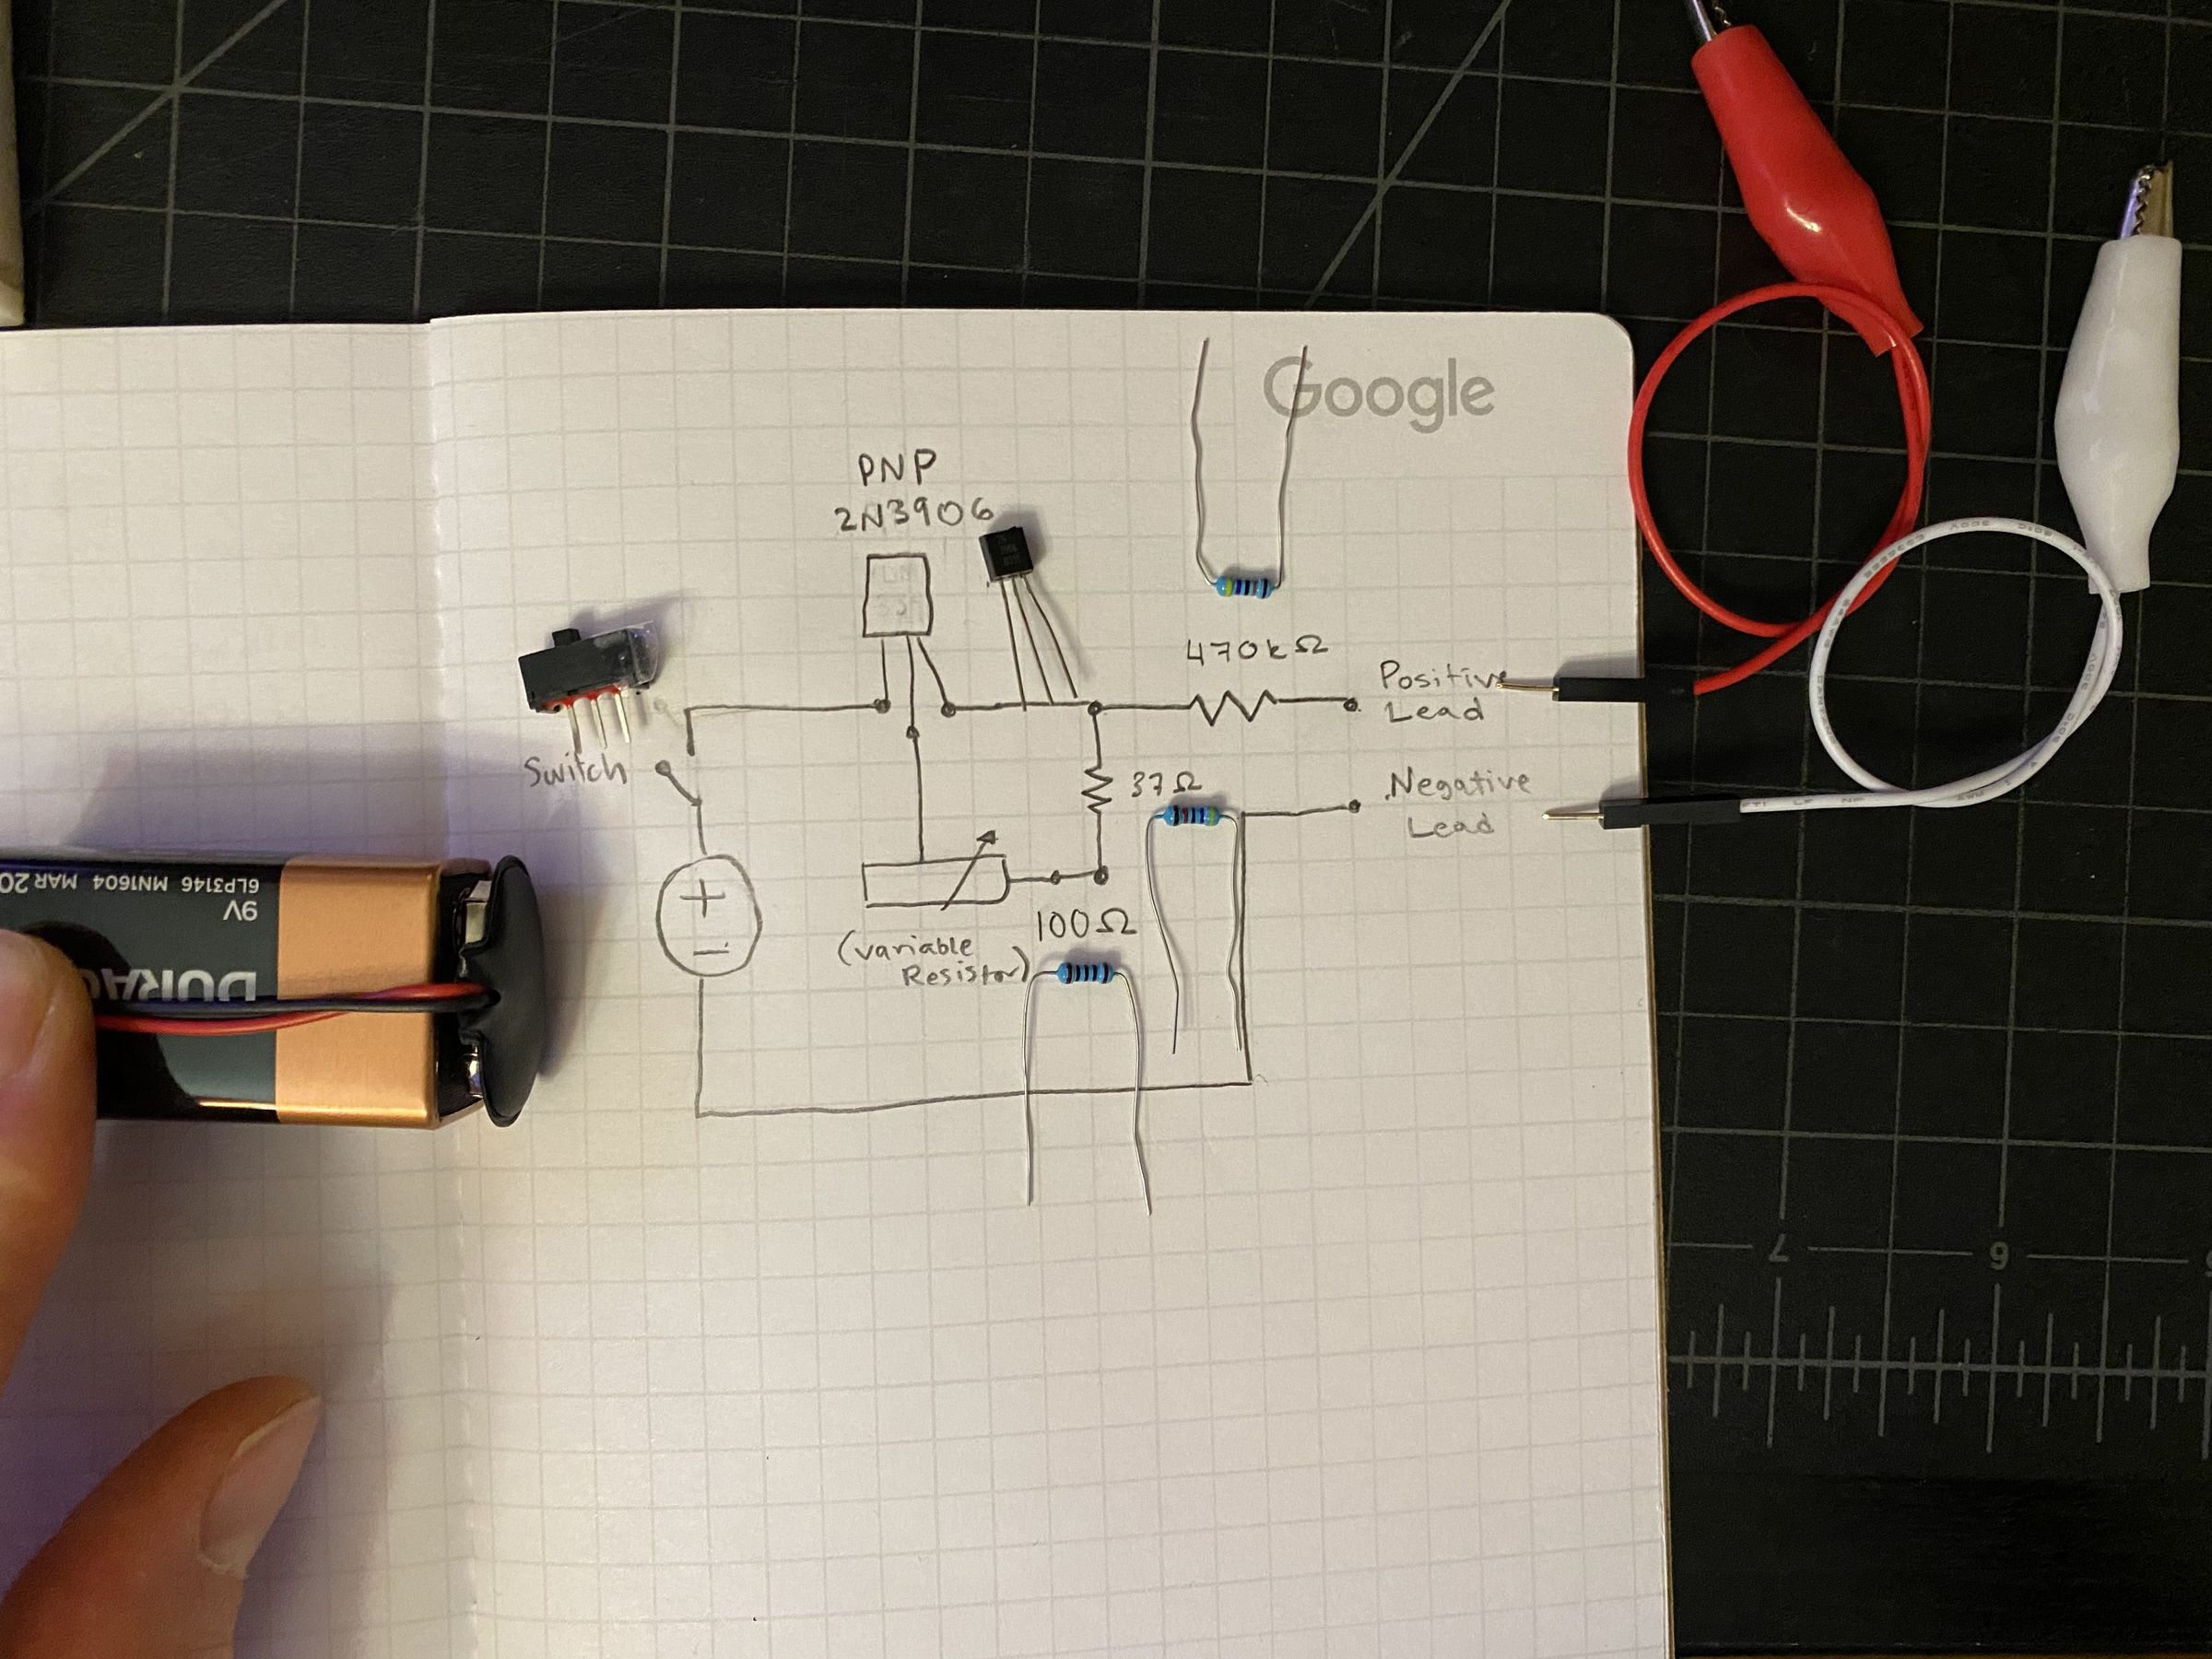 Google
PNP
2N3906
470kΩ
Positive
Lead
Switch
37Ω
Negative
Lead
6LP3146 MN1604 MAR 20
9V
100Ω
(variable
Resistor)
7
6